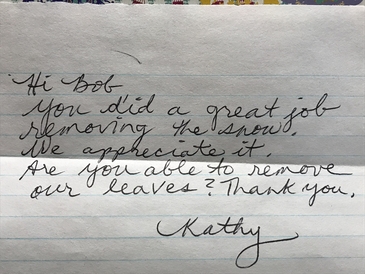 Hi Bob
You did a great job
removing the snow.
We appreciate it.
Are you able to remove
our leaves? Thank you.
Kathy